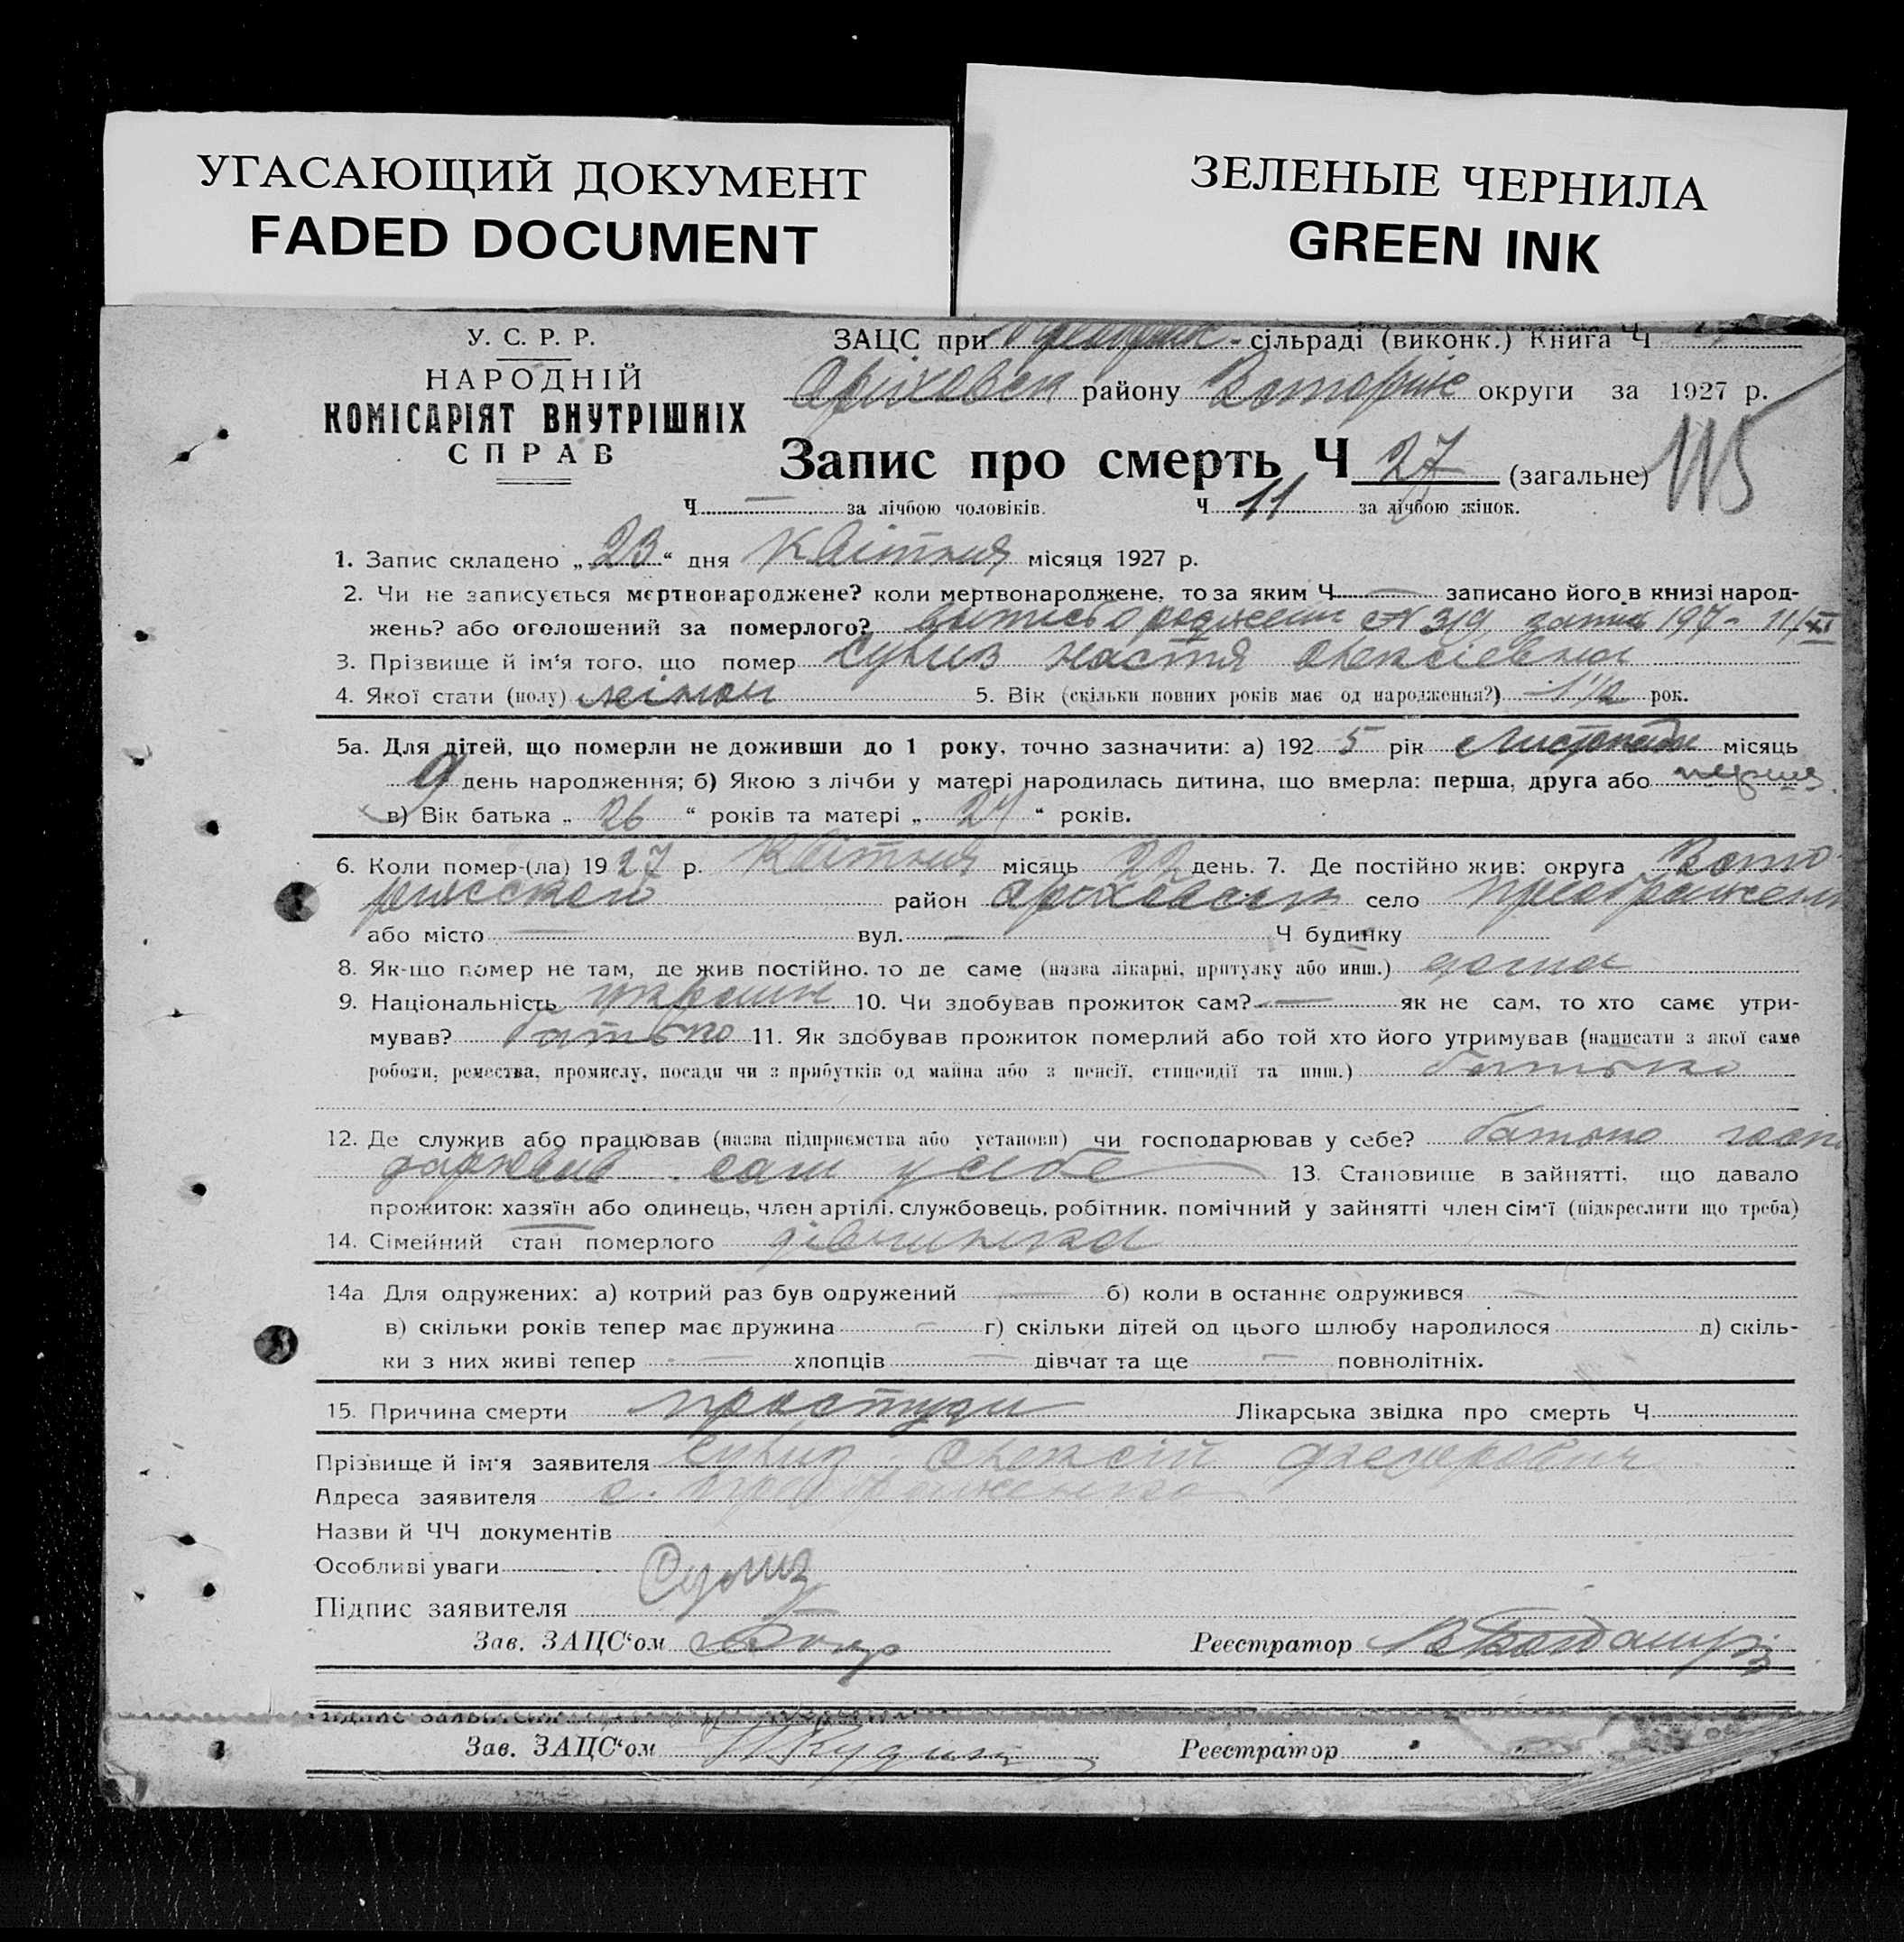 УГАСАЮЩИЙ ДОКУМЕНТ
FADED DOCUMENT
ЗЕЛЕНЫЕ ЧЕРНИЛА
GREEN INK
У. С. Р. Р.
НАРОДНІЙ
КОМІСАРІЯТ ВНУТРІШНІХ
СПРАВ
ЗАЦС при сільраді (виконк.) Книга Ч
Оріховск району Запоріж округи за 1927 р.
Запис про смерть Ч 27 (загальне) 115
Ч — за лічбою чоловіків. Ч 11 за лічбою жінок.
1. Запис складено „23“ дня Квітня місяця 1927 р.
2. Чи не записується мертвонароджене? коли мертвонароджене, то за яким Ч — записано його в книзі народ-
жень? або оголошений за померлого? N 319
3. Прізвище й ім'я того, що помер Сулиз Настя Олексієвна
4. Якої стати (полу) жіноч 5. Вік (скільки повних років має од народження?) 1 1/2 рок.
5а. Для дітей, що померли не доживши до 1 року, точно зазначити: а) 1925 рік Листопада місяць
9 день народження; б) Якою з лічби у матері народилась дитина, що вмерла: перша, друга або перша
в) Вік батька „26“ років та матері „27“ років.
6. Коли помер-(ла) 1927 р. Квітня місяць 22 день. 7. Де постійно жив: округа Запо-
ріжской район Оріховськ село Преображенк
або місто — вул. — Ч будинку
8. Як-що помер не там, де жив постійно, то де саме (назва лікарні, притулку або инш.) дома
9. Національність україн 10. Чи здобував прожиток сам? — як не сам, то хто саме утри-
мував? батько 11. Як здобував прожиток померлий або той хто його утримував (написати з якої саме
роботи, ремества, промислу, посади чи з прибутків од майна або з пенсії, стипендії та инш.) батько
12. Де служив або працював (назва підприємства або установи) чи господарював у себе? батько госпо
дарював сам у себе 13. Становище в зайнятті, що давало
прожиток: хазяїн або одинець, член артілі, службовець, робітник, помічний у зайнятті член сім'ї (підкреслити що треба)
14. Сімейний стан померлого дівчинка
14а Для одружених: а) котрий раз був одружений — б) коли в останнє одружився —
в) скільки років тепер має дружина — г) скільки дітей од цього шлюбу народилося д) скіль-
ки з них живі тепер — хлопців — дівчат та ще — повнолітніх.
15. Причина смерти простуди Лікарська звідка про смерть Ч
Прізвище й ім'я заявителя Сулиз Олексій Федорович
Адреса заявителя с. Преображенка
Назви й ЧЧ документів
Особливі уваги
Підпис заявителя
Зав. ЗАЦС'ом Реєстратор
Зав. ЗАЦС'ом Реєстратор